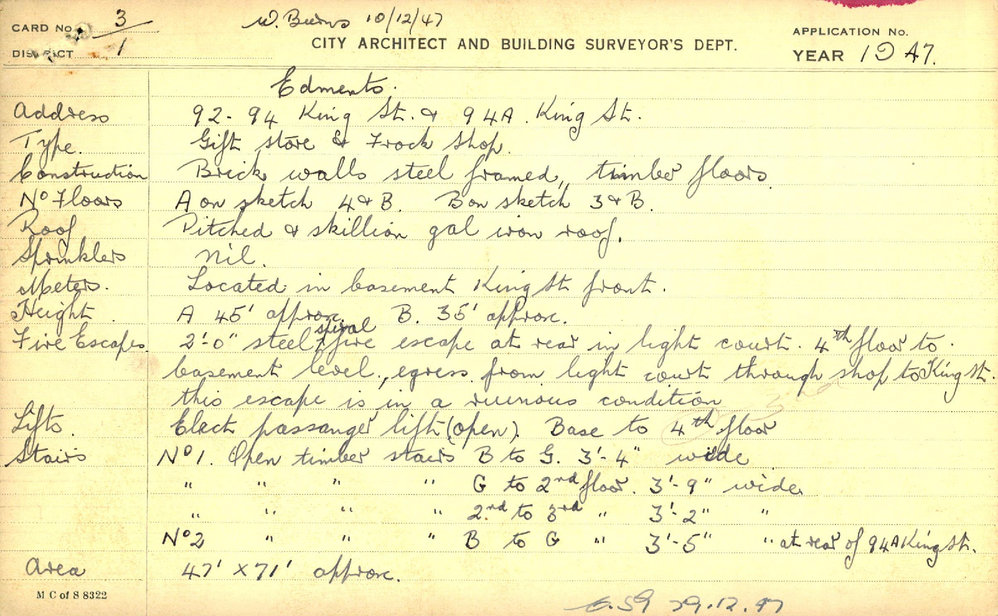 CARD No. 3
W. Burns 10/12/47
APPLICATION No.
DISTRICT 1
CITY ARCHITECT AND BUILDING SURVEYOR'S DEPT.
YEAR 1947.
Edments.
Address 92-94 King St. & 94A King St.
Type. Gift store & Frock Shop.
Construction Brick walls steel framed, timber floors.
No Floors A on sketch 4 & B. B on sketch 3 & B.
Roof Pitched & skillion gal iron roof.
Sprinklers Nil.
Meters. Located in basement King St front.
Height. A 45' approx. B. 35' approx.
Fire Escapes. 2'-0" steel spiral fire escape at rear in light court. 4th floor to
basement level, egress from light court through shop to King St.
this escape is in a ruinous condition
Lifts. Elect passanger lift (open). Base to 4th floor
Stairs No 1. Open timber stairs B to G. 3'-4" wide
" " " " G to 2nd floor. 3'-9" wide
" " " " 2nd to 3rd " 3'-2" "
No 2 " " " B to G " 3'-5" " at rear of 94A King St.
Area 47' x 71' approx.
M C of S 8322
29.12.47